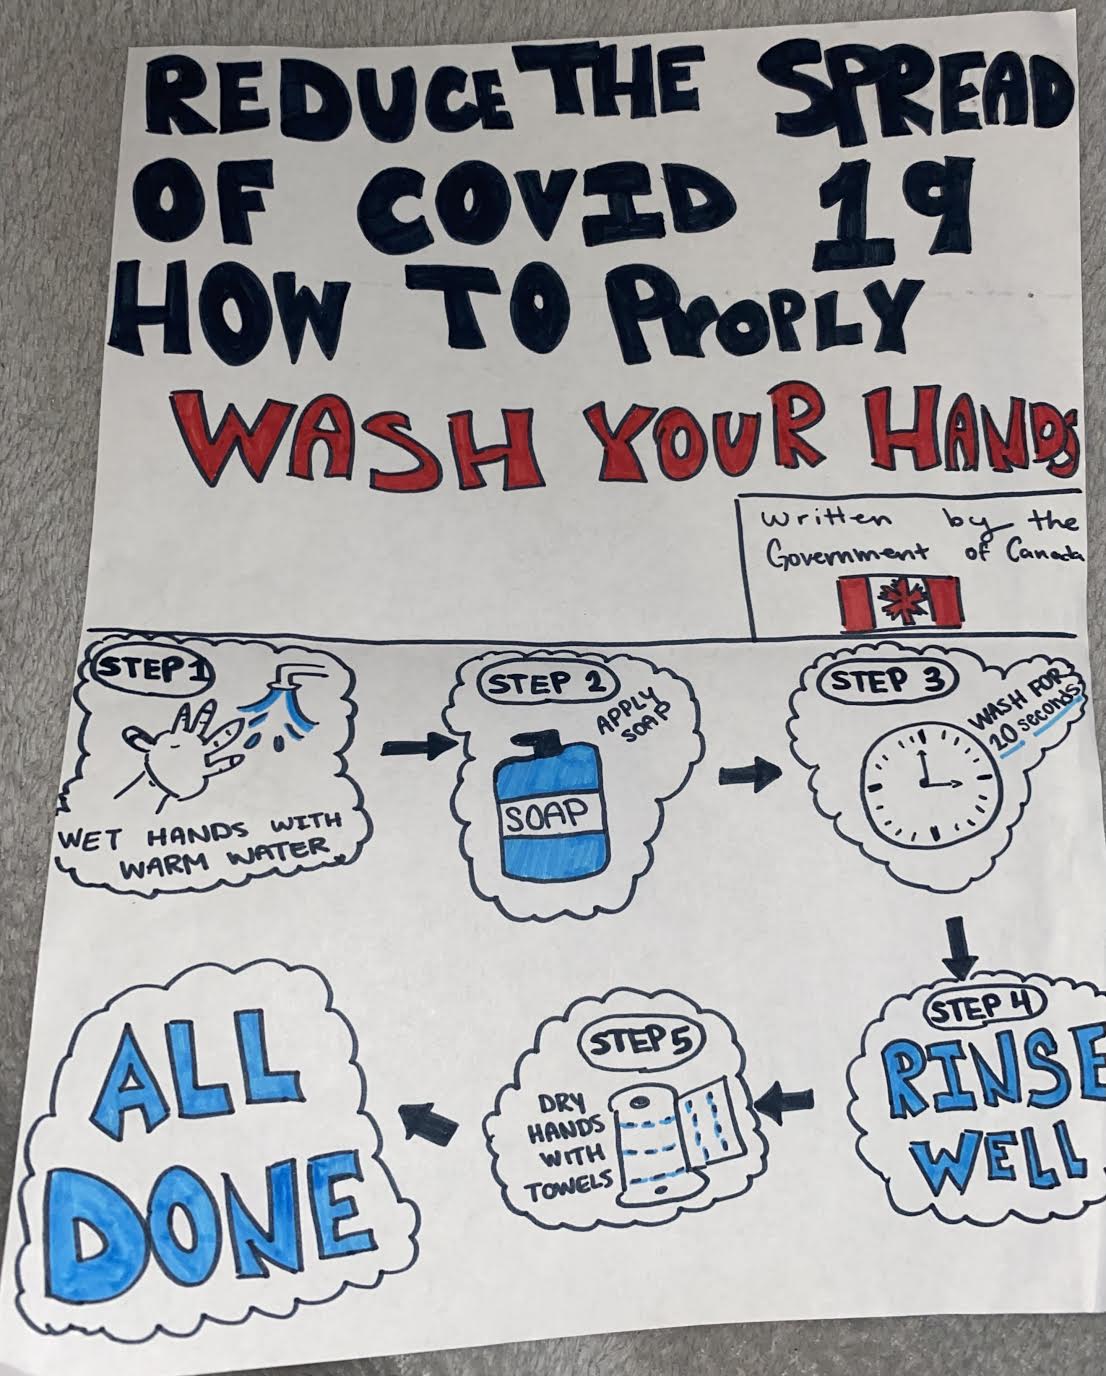 REDUCE THE SPREAD
OF COVID 19
HOW TO PROPLY
WASH YOUR HANDS
Written by the
Government of Canada
STEP 1
WET HANDS WITH
WARM WATER
STEP 2
APPLY
SOAP
SOAP
STEP 3
WASH FOR
20 seconds
STEP 4
RINSE
WELL
STEP 5
DRY
HANDS
WITH
TOWELS
ALL
DONE